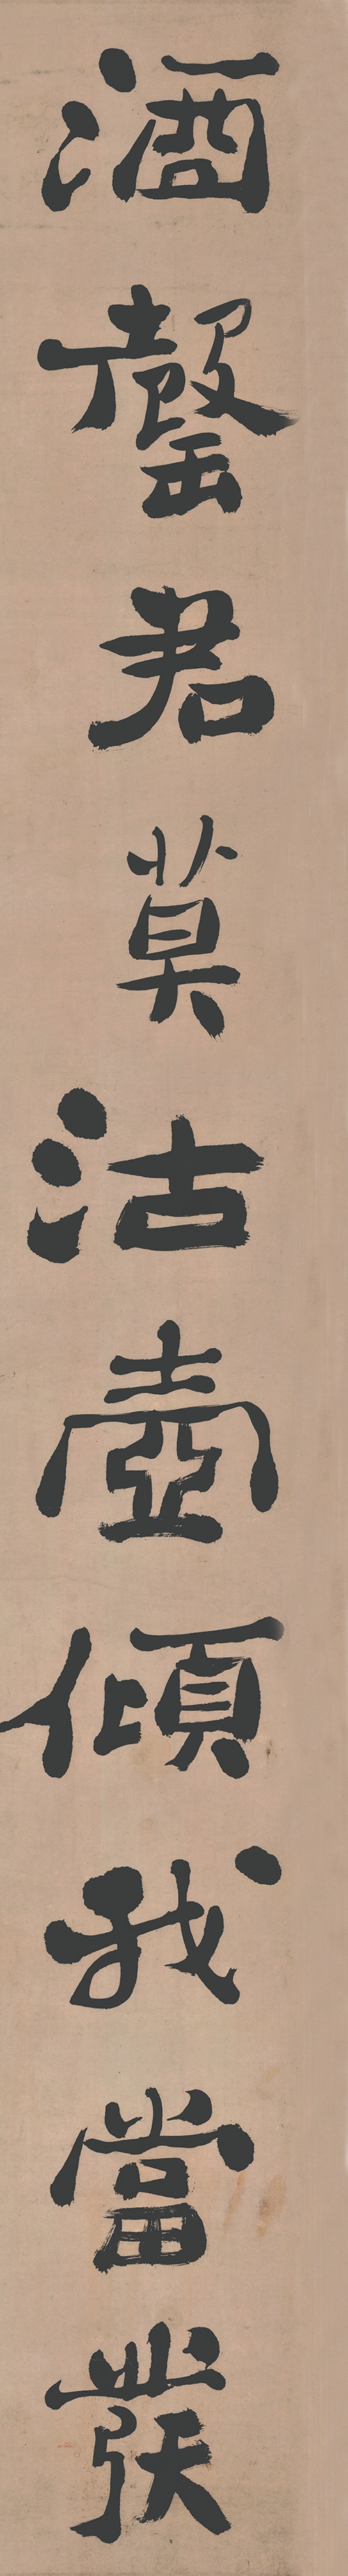 酒罄君莫沽壺傾我當發